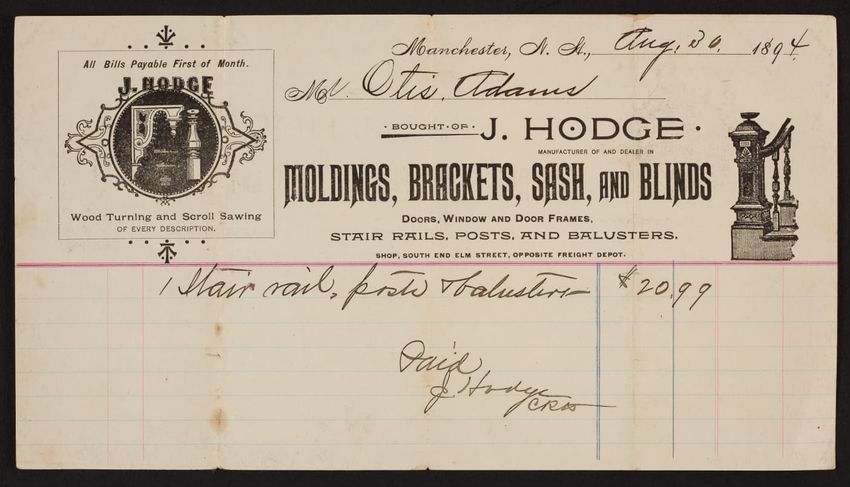 All Bills Payable First of Month.
J. HODGE
Wood Turning and Scroll Sawing
OF EVERY DESCRIPTION.
Manchester, N. H., Aug. 30, 1894.
Mr. Otis Adams
· BOUGHT · OF · J. HODGE ·
MANUFACTURER OF AND DEALER IN
MOLDINGS, BRACKETS, SASH, AND BLINDS
DOORS, WINDOW AND DOOR FRAMES,
STAIR RAILS, POSTS, AND BALUSTERS.
SHOP, SOUTH END ELM STREET, OPPOSITE FREIGHT DEPOT.
1 Stair rail, posts & balusters $20.99
Paid
J. Hodge